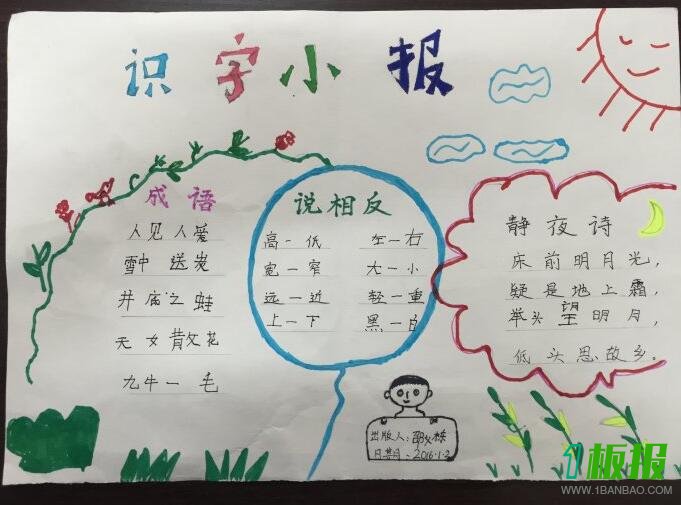 识字小报
成语
人见人爱
雪中送炭
井底之蛙
天女散花
九牛一毛
说相反
高—低 左—右
宽—窄 大—小
远—近 轻—重
上—下 黑—白
静夜诗
床前明月光，
疑是地上霜，
举头望明月，
低头思故乡。
出版人：邵
日期：2016.1.2
1板报
WWW.1BANBAO.COM